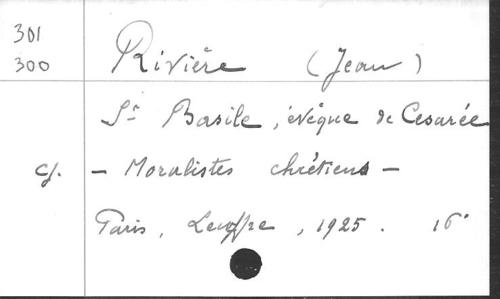 301
300
Rivière (Jean)
St Basile, évêque de Cesarée
cf. - Moralistes chrétiens -
Paris, , 1925. 16°